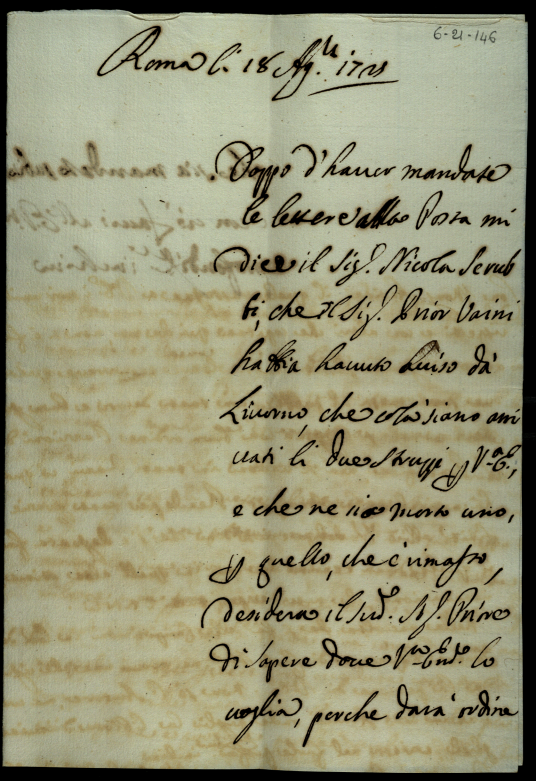 6-21-146
Roma li 18 Ag.to 17
Doppo d'haver mandate
le lettere alla Posta mi
dice il Sig.r Nicola Serub
bi, che il Sig.r Prior Vaini
habbia havuto aviso dà
Livorno, che colà siano arri
vati li due struzzi p V.a E.,
e che ne sia morto uno,
p quello, che è rimasto,
desidera il sud.o Sig.r Priore
di sapere dove V.ra lo
voglia, perche darà ordine